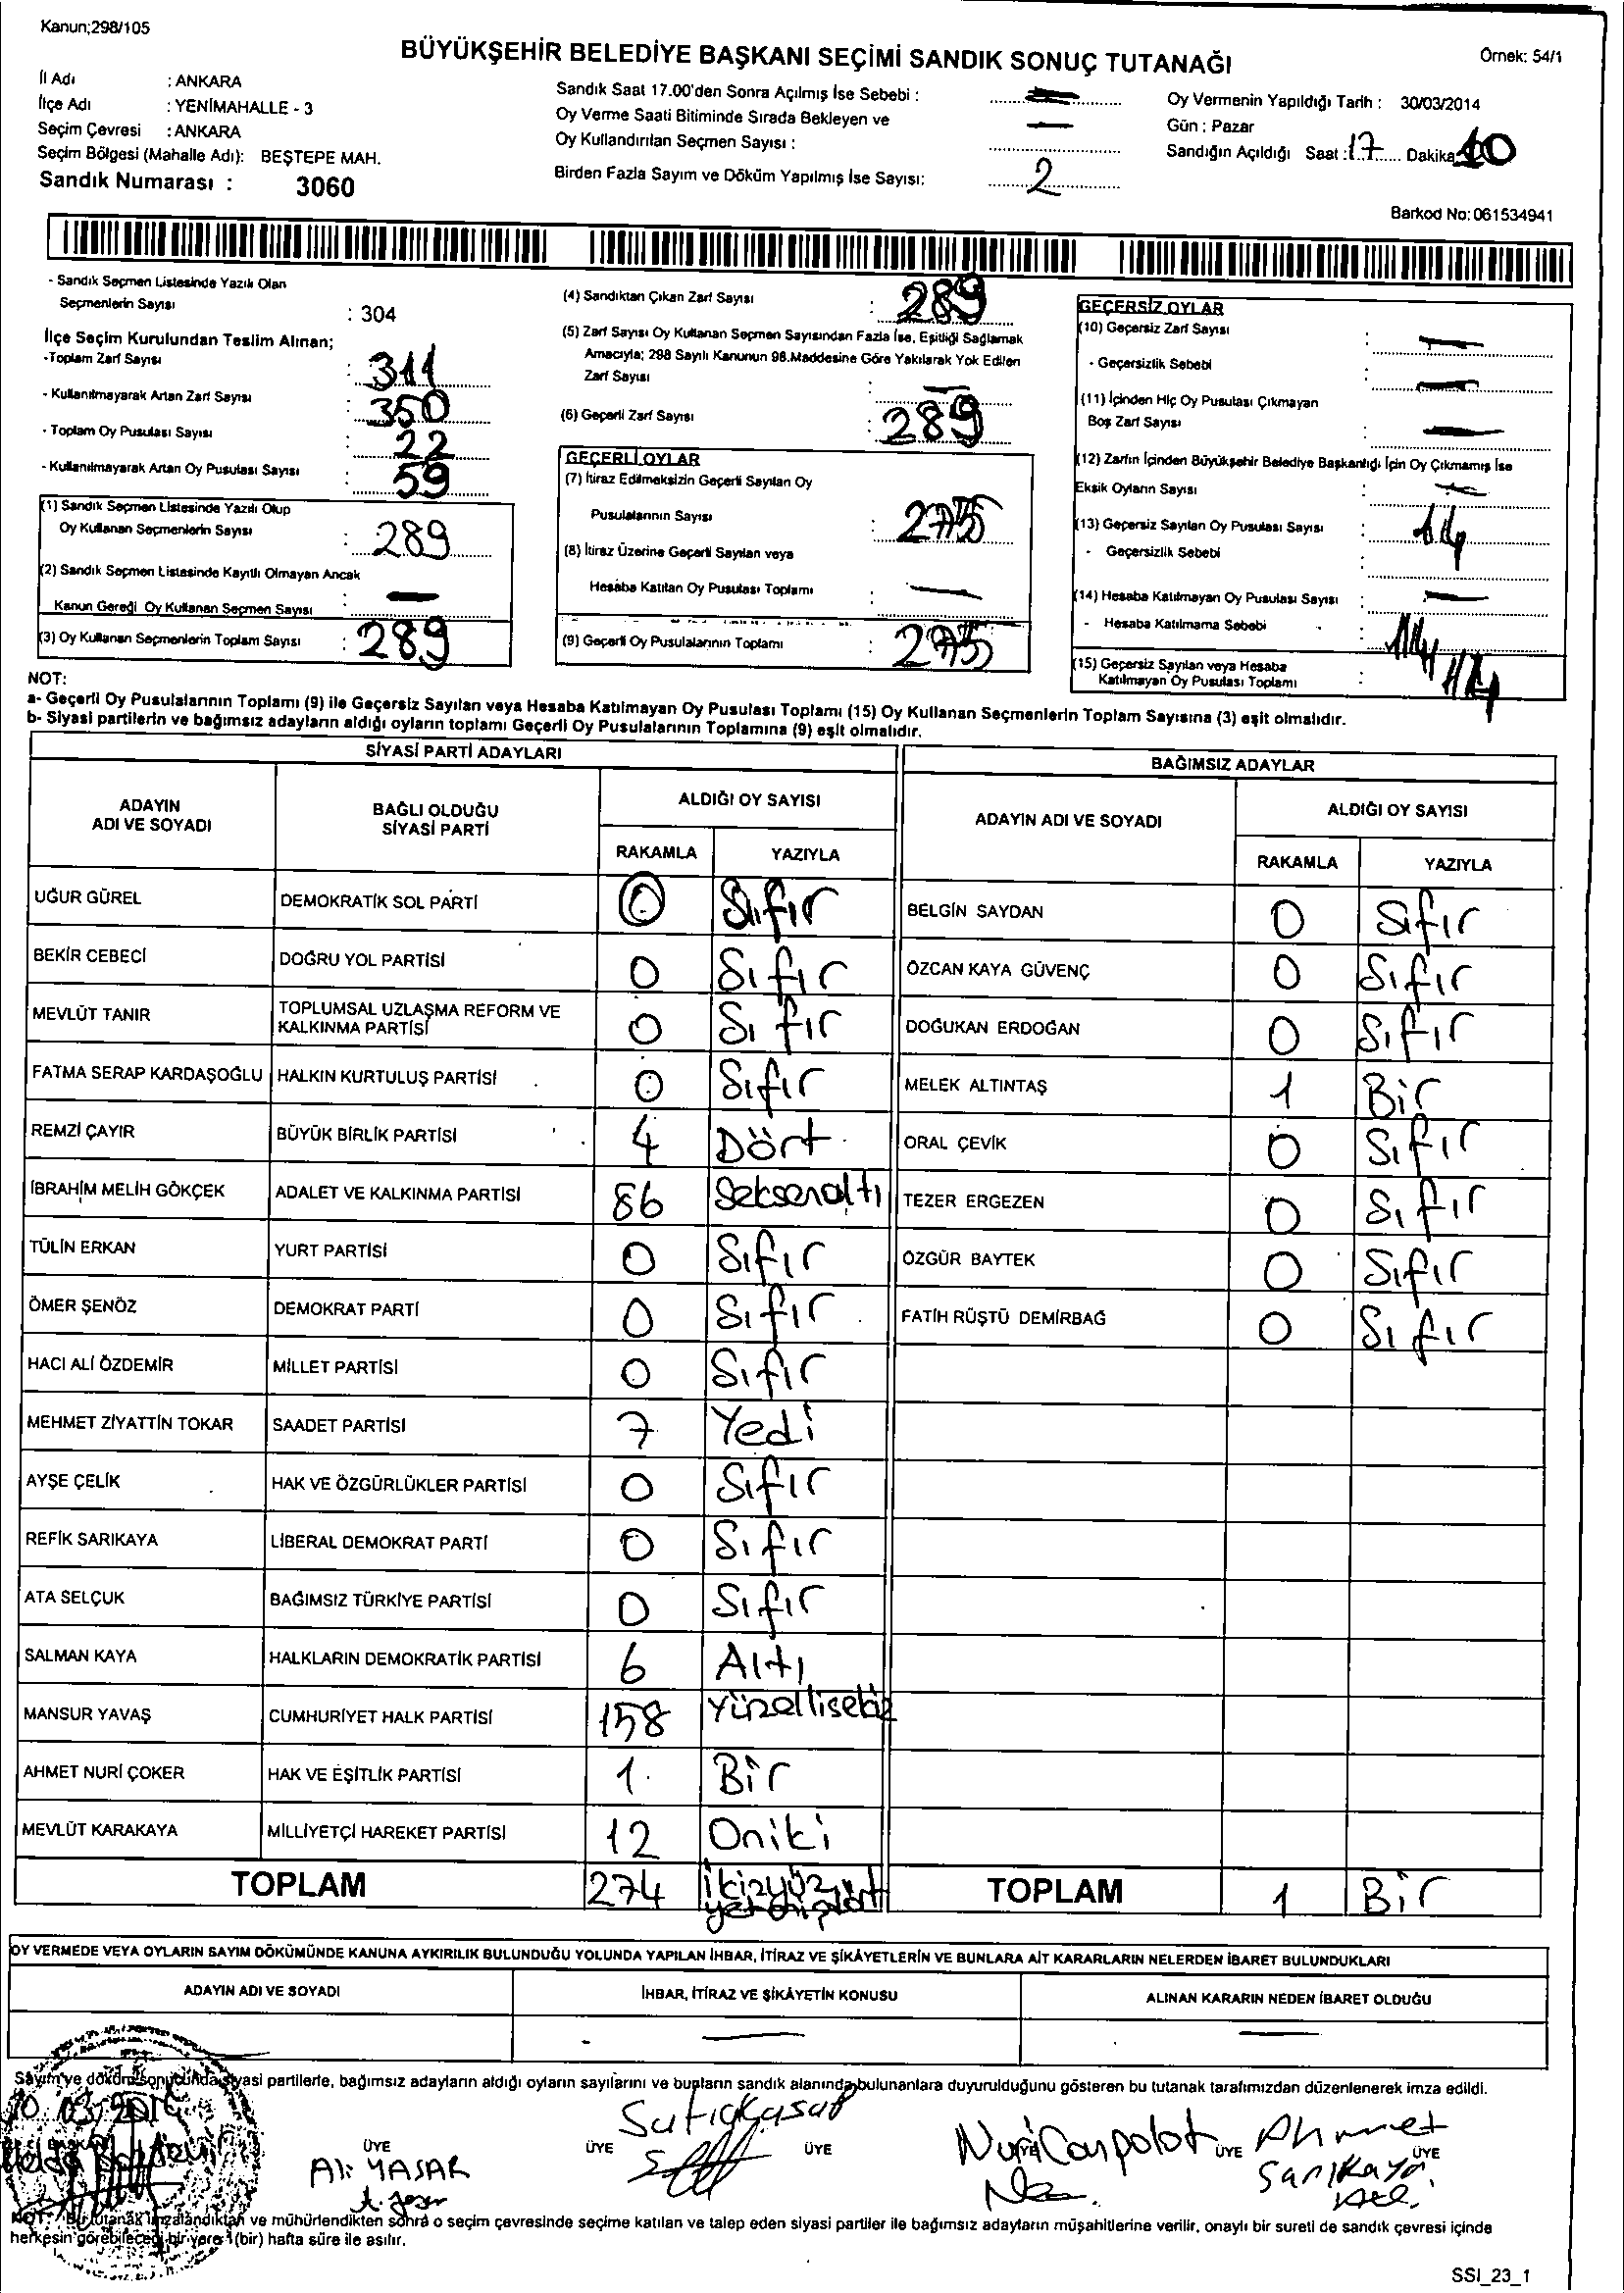 Kanun;298/105
BÜYÜKŞEHİR BELEDİYE BAŞKANI SEÇİMİ SANDIK SONUÇ TUTANAĞI
Örnek: 54/1
İl Adı : ANKARA
İlçe Adı : YENİMAHALLE - 3
Seçim Çevresi : ANKARA
Seçim Bölgesi (Mahalle Adı): BEŞTEPE MAH.
Sandık Numarası : 3060
Sandık Saat 17.00'den Sonra Açılmış İse Sebebi : —
Oy Verme Saati Bitiminde Sırada Bekleyen ve
Oy Kullandırılan Seçmen Sayısı : —
Birden Fazla Sayım ve Döküm Yapılmış İse Sayısı: 2
Oy Vermenin Yapıldığı Tarih : 30/03/2014
Gün : Pazar
Sandığın Açıldığı Saat : 17 Dakika 10
Barkod No: 061534941
- Sandık Seçmen Listesinde Yazılı Olan
Seçmenlerin Sayısı : 304
İlçe Seçim Kurulundan Teslim Alınan;
-Toplam Zarf Sayısı : 311
- Kullanılmayarak Artan Zarf Sayısı : 350
- Toplam Oy Pusulası Sayısı : 22
- Kullanılmayarak Artan Oy Pusulası Sayısı : 59
(1) Sandık Seçmen Listesinde Yazılı Olup
Oy Kullanan Seçmenlerin Sayısı : 289
(2) Sandık Seçmen Listesinde Kayıtlı Olmayan Ancak
Kanun Gereği Oy Kullanan Seçmen Sayısı : —
(3) Oy Kullanan Seçmenlerin Toplam Sayısı : 289
(4) Sandıktan Çıkan Zarf Sayısı : 289
(5) Zarf Sayısı Oy Kullanan Seçmen Sayısından Fazla İse, Eşitliği Sağlamak
Amacıyla; 298 Sayılı Kanunun 98.Maddesine Göre Yakılarak Yok Edilen
Zarf Sayısı : —
(6) Geçerli Zarf Sayısı : 289
GEÇERLİ OYLAR
(7) İtiraz Edilmeksizin Geçerli Sayılan Oy
Pusulalarının Sayısı : 275
(8) İtiraz Üzerine Geçerli Sayılan veya
Hesaba Katılan Oy Pusulası Toplamı : —
(9) Geçerli Oy Pusulalarının Toplamı : 275
GEÇERSİZ OYLAR
(10) Geçersiz Zarf Sayısı : —
- Geçersizlik Sebebi : —
(11) İçinden Hiç Oy Pusulası Çıkmayan
Boş Zarf Sayısı : —
(12) Zarfın İçinden Büyükşehir Belediye Başkanlığı İçin Oy Çıkmamış İse
Eksik Oyların Sayısı : —
(13) Geçersiz Sayılan Oy Pusulası Sayısı : 14
- Geçersizlik Sebebi :
(14) Hesaba Katılmayan Oy Pusulası Sayısı : —
- Hesaba Katılmama Sebebi :
(15) Geçersiz Sayılan veya Hesaba
Katılmayan Oy Pusulası Toplamı : 14
NOT:
a- Geçerli Oy Pusulalarının Toplamı (9) ile Geçersiz Sayılan veya Hesaba Katılmayan Oy Pusulası Toplamı (15) Oy Kullanan Seçmenlerin Toplam Sayısına (3) eşit olmalıdır.
b- Siyasi partilerin ve bağımsız adayların aldığı oyların toplamı Geçerli Oy Pusulalarının Toplamına (9) eşit olmalıdır.
SİYASİ PARTİ ADAYLARI
ADAYIN ADI VE SOYADI BAĞLI OLDUĞU SİYASİ PARTİ ALDIĞI OY SAYISI
RAKAMLA YAZIYLA
UĞUR GÜREL DEMOKRATİK SOL PARTİ 0 Sıfır
BEKİR CEBECİ DOĞRU YOL PARTİSİ 0 Sıfır
MEVLÜT TANIR TOPLUMSAL UZLAŞMA REFORM VE KALKINMA PARTİSİ 0 Sıfır
FATMA SERAP KARDAŞOĞLU HALKIN KURTULUŞ PARTİSİ 0 Sıfır
REMZİ ÇAYIR BÜYÜK BİRLİK PARTİSİ 4 Dört
İBRAHİM MELİH GÖKÇEK ADALET VE KALKINMA PARTİSİ 86 Seksenaltı
TÜLİN ERKAN YURT PARTİSİ 0 Sıfır
ÖMER ŞENÖZ DEMOKRAT PARTİ 0 Sıfır
HACI ALİ ÖZDEMİR MİLLET PARTİSİ 0 Sıfır
MEHMET ZİYATTİN TOKAR SAADET PARTİSİ 7 Yedi
AYŞE ÇELİK HAK VE ÖZGÜRLÜKLER PARTİSİ 0 Sıfır
REFİK SARIKAYA LİBERAL DEMOKRAT PARTİ 0 Sıfır
ATA SELÇUK BAĞIMSIZ TÜRKİYE PARTİSİ 0 Sıfır
SALMAN KAYA HALKLARIN DEMOKRATİK PARTİSİ 6 Altı
MANSUR YAVAŞ CUMHURİYET HALK PARTİSİ 158 Yüzellisekiz
AHMET NURİ ÇOKER HAK VE EŞİTLİK PARTİSİ 1 Bir
MEVLÜT KARAKAYA MİLLİYETÇİ HAREKET PARTİSİ 12 Oniki
TOPLAM 274 İkizyüz yetmişdört
BAĞIMSIZ ADAYLAR
ADAYIN ADI VE SOYADI ALDIĞI OY SAYISI
RAKAMLA YAZIYLA
BELGİN SAYDAN 0 Sıfır
ÖZCAN KAYA GÜVENÇ 0 Sıfır
DOĞUKAN ERDOĞAN 0 Sıfır
MELEK ALTINTAŞ 1 Bir
ORAL ÇEVİK 0 Sıfır
TEZER ERGEZEN 0 Sıfır
ÖZGÜR BAYTEK 0 Sıfır
FATİH RÜŞTÜ DEMİRBAĞ 0 Sıfır
TOPLAM 1 Bir
OY VERMEDE VEYA OYLARIN SAYIM DÖKÜMÜNDE KANUNA AYKIRILIK BULUNDUĞU YOLUNDA YAPILAN İHBAR, İTİRAZ VE ŞİKÂYETLERİN VE BUNLARA AİT KARARLARIN NELERDEN İBARET BULUNDUKLARI
ADAYIN ADI VE SOYADI İHBAR, İTİRAZ VE ŞİKÂYETİN KONUSU ALINAN KARARIN NEDEN İBARET OLDUĞU
Sayım ve döküm sonucunda siyasi partilerle, bağımsız adayların aldığı oyların sayılarını ve bunların sandık alanında bulunanlara duyurulduğunu gösteren bu tutanak tarafımızdan düzenlenerek imza edildi.
BAŞKAN ÜYE ÜYE ÜYE ÜYE ÜYE
Ali YAŞAR
Nuri Canpolat
Ahmet Sarıkaya
NOT: Bu tutanak imzalandıktan ve mühürlendikten sonra o seçim çevresinde seçime katılan ve talep eden siyasi partiler ile bağımsız adayların müşahitlerine verilir, onaylı bir sureti de sandık çevresi içinde
herkesin görebileceği bir yere 1 (bir) hafta süre ile asılır.
SSI_23_1